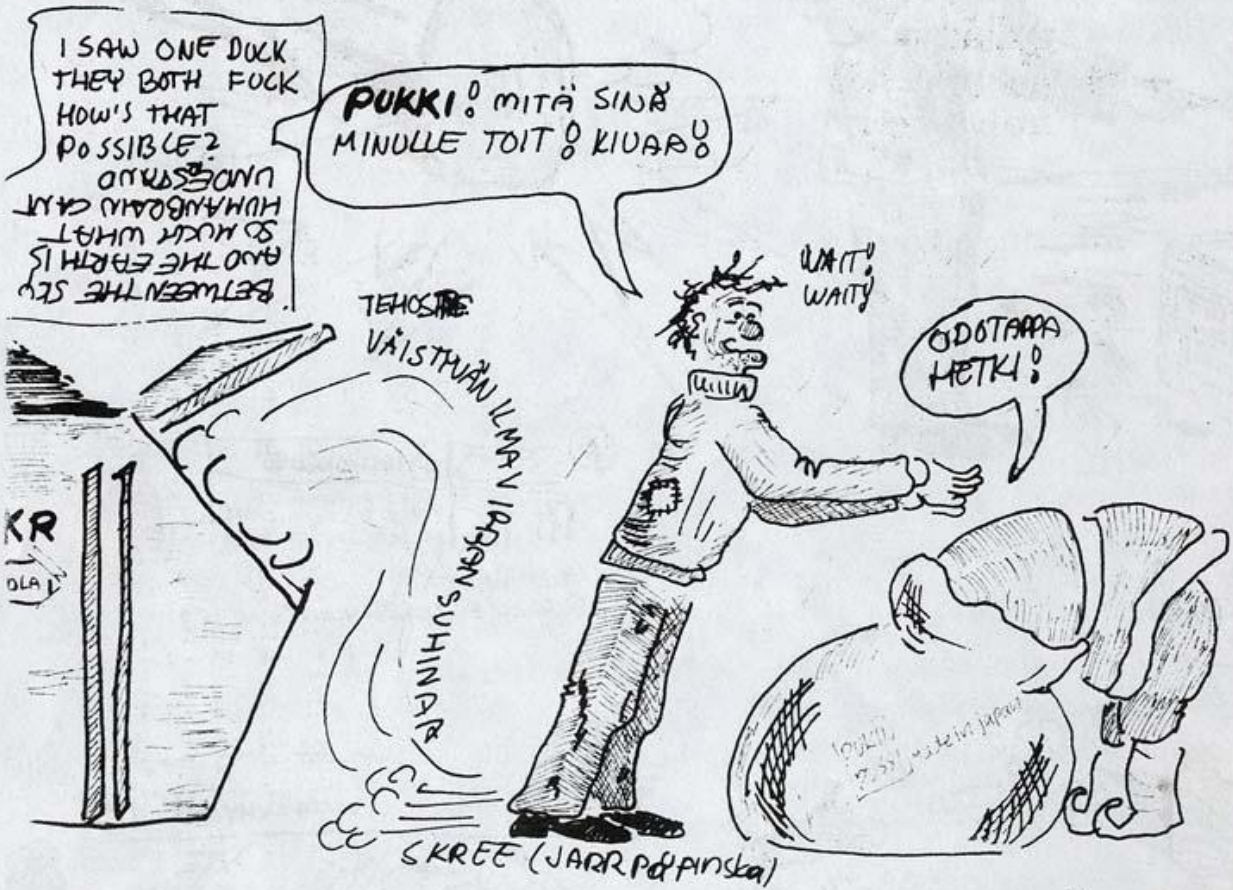 I SAW ONE DUCK
THEY BOTH FUCK
HOW'S THAT
POSSIBLE?
BETWEEN THE SKY
AND THE EARTH IS
SO MUCH WHAT
HUMANBRAIN CANT
UNDESTAND
PUKKI! MITÄ SINÄ
MINULLE TOIT! KIVAA!
WAIT!
WAIT!
ODOTAPPA
HETKI!
TEHOSTE
VÄISTYVÄN ILMAVIRRAN SUHINAA
KR
OLA
made in japan
SKREE